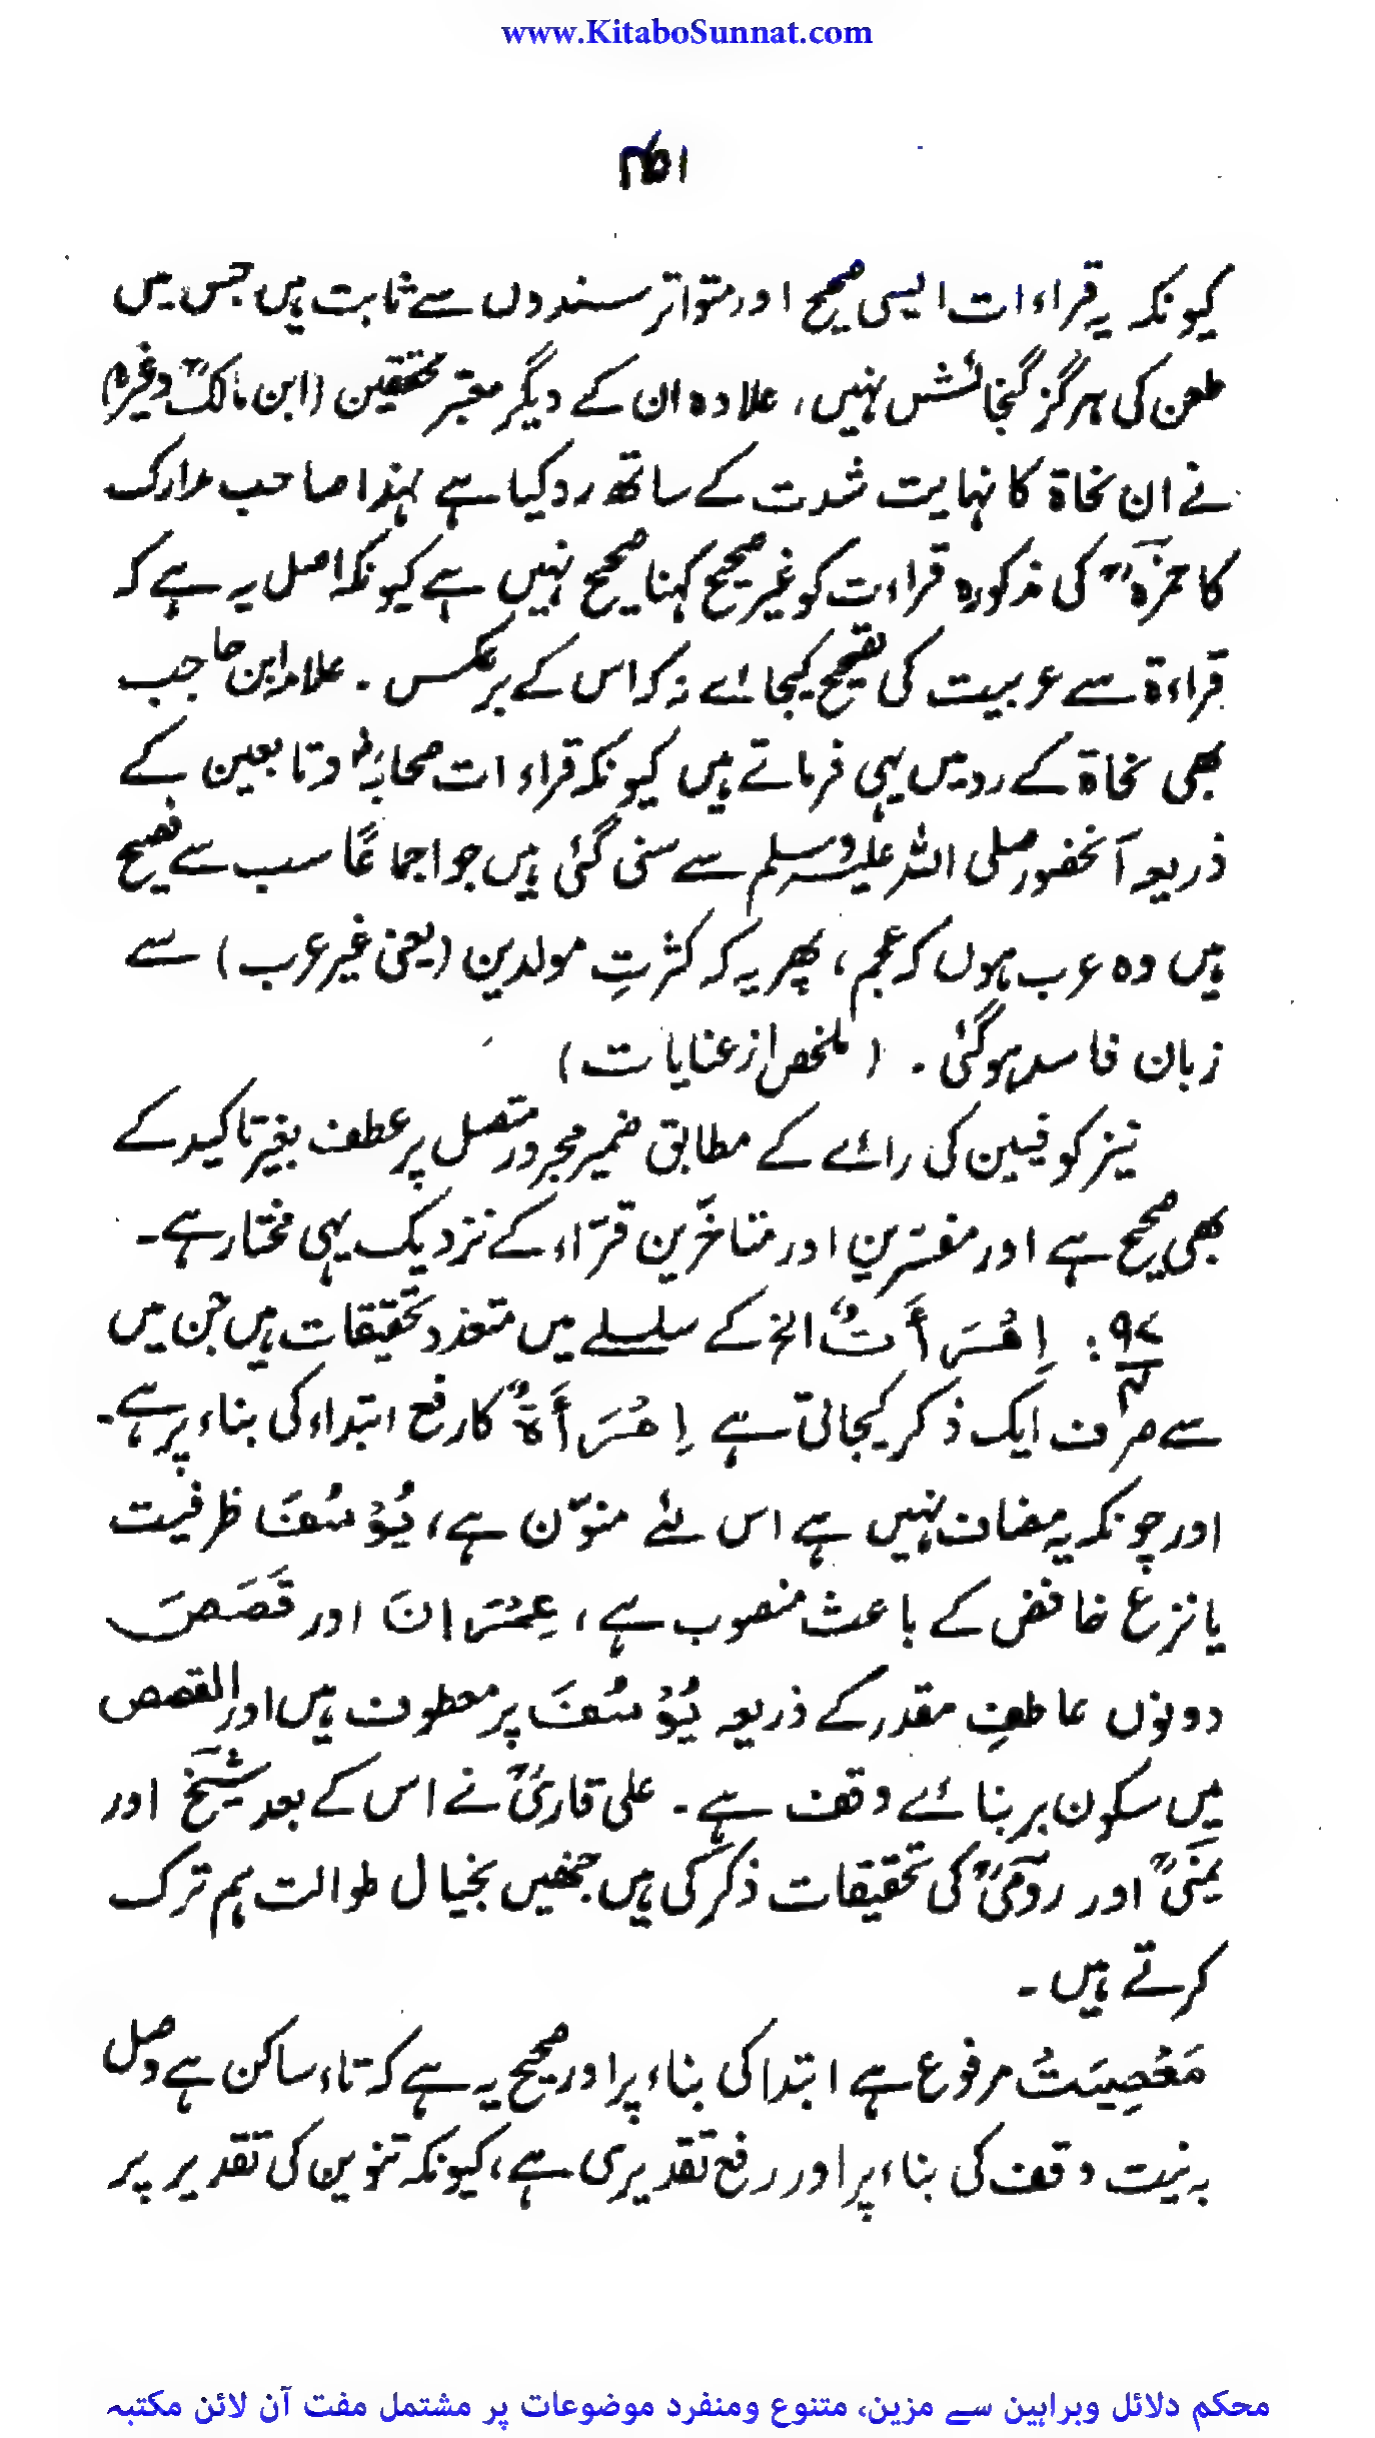 www.KitaboSunnat.com
کیونکہ یہ قراءات ایسی صحیح اور متواتر سندوں سے ثابت ہیں جس میں
طعن کی ہرگز گنجائش نہیں، علاوہ ان کے دیگر معتبر محققین (ابن مالکؒ وغیرہ)
نے ان نحاۃ کا نہایت شدت کے ساتھ رد کیا ہے لہٰذا صاحب مدارک
کا حمزہؒ کی مذکورہ قراءت کو غیر صحیح کہنا صحیح نہیں ہے کیونکہ اصل یہ ہے کہ
قراءۃ سے عربیت کی تصحیح کیجائے نہ کہ اس کے برعکس ۔ علامہ ابن حاجب
بھی نحاۃ کے رد میں یہی فرماتے ہیں کیونکہ قراءات صحابہؓ و تابعین کے
ذریعہ آنحضور صلی اللہ علیہ وسلم سے سنی گئی ہیں جو اجماعًا سب سے فصیح
ہیں وہ عرب ہوں کہ عجم، پھر یہ کہ کثرتِ مولدین (یعنی غیر عرب) سے
زبان فاسد ہوگئی ۔ (ملخص از عنایات)
نیز کوفیین کی رائے کے مطابق ضمیر مجرور متصل پر عطف بغیر تاکید کے
بھی صحیح ہے اور مفسّرین اور متاخّرین قرّاء کے نزدیک یہی مختار ہے۔
۹۷ : اِمْرَأَتٌ الخ کے سلسلے میں متعدد تحقیقات ہیں جن میں
سے صرف ایک ذکر کیجاتی ہے اِمْرَأَۃٌ کا رفع ابتداء کی بناء پر ہے۔
اور چونکہ یہ مضاف نہیں ہے اس لئے منوّن ہے، یُوْسُفَ ظرفیت
یا نزع خافض کے باعث منصوب ہے، عِمْرَانَ اور قَصَصَ
دونوں عاطفِ مقدر کے ذریعہ یُوْسُفَ پر معطوف ہیں اور القصص
میں سکون بربنائے وقف ہے ۔ علی قاریؒ نے اس کے بعد شیخؒ اور
یمنیؒ اور رومیؒ کی تحقیقات ذکر کی ہیں جنھیں بخیال طوالت ہم ترک
کرتے ہیں ۔
مَعْصِیَتُ مرفوع ہے ابتدا کی بناء پر اور صحیح یہ ہے کہ تاء ساکن ہے وصل
بہ نیت وقف کی بناء پر اور رفع تقدیری ہے، کیونکہ تنوین کی تقدیر پر
محکم دلائل وبراہین سے مزین، متنوع ومنفرد موضوعات پر مشتمل مفت آن لائن مکتبہ